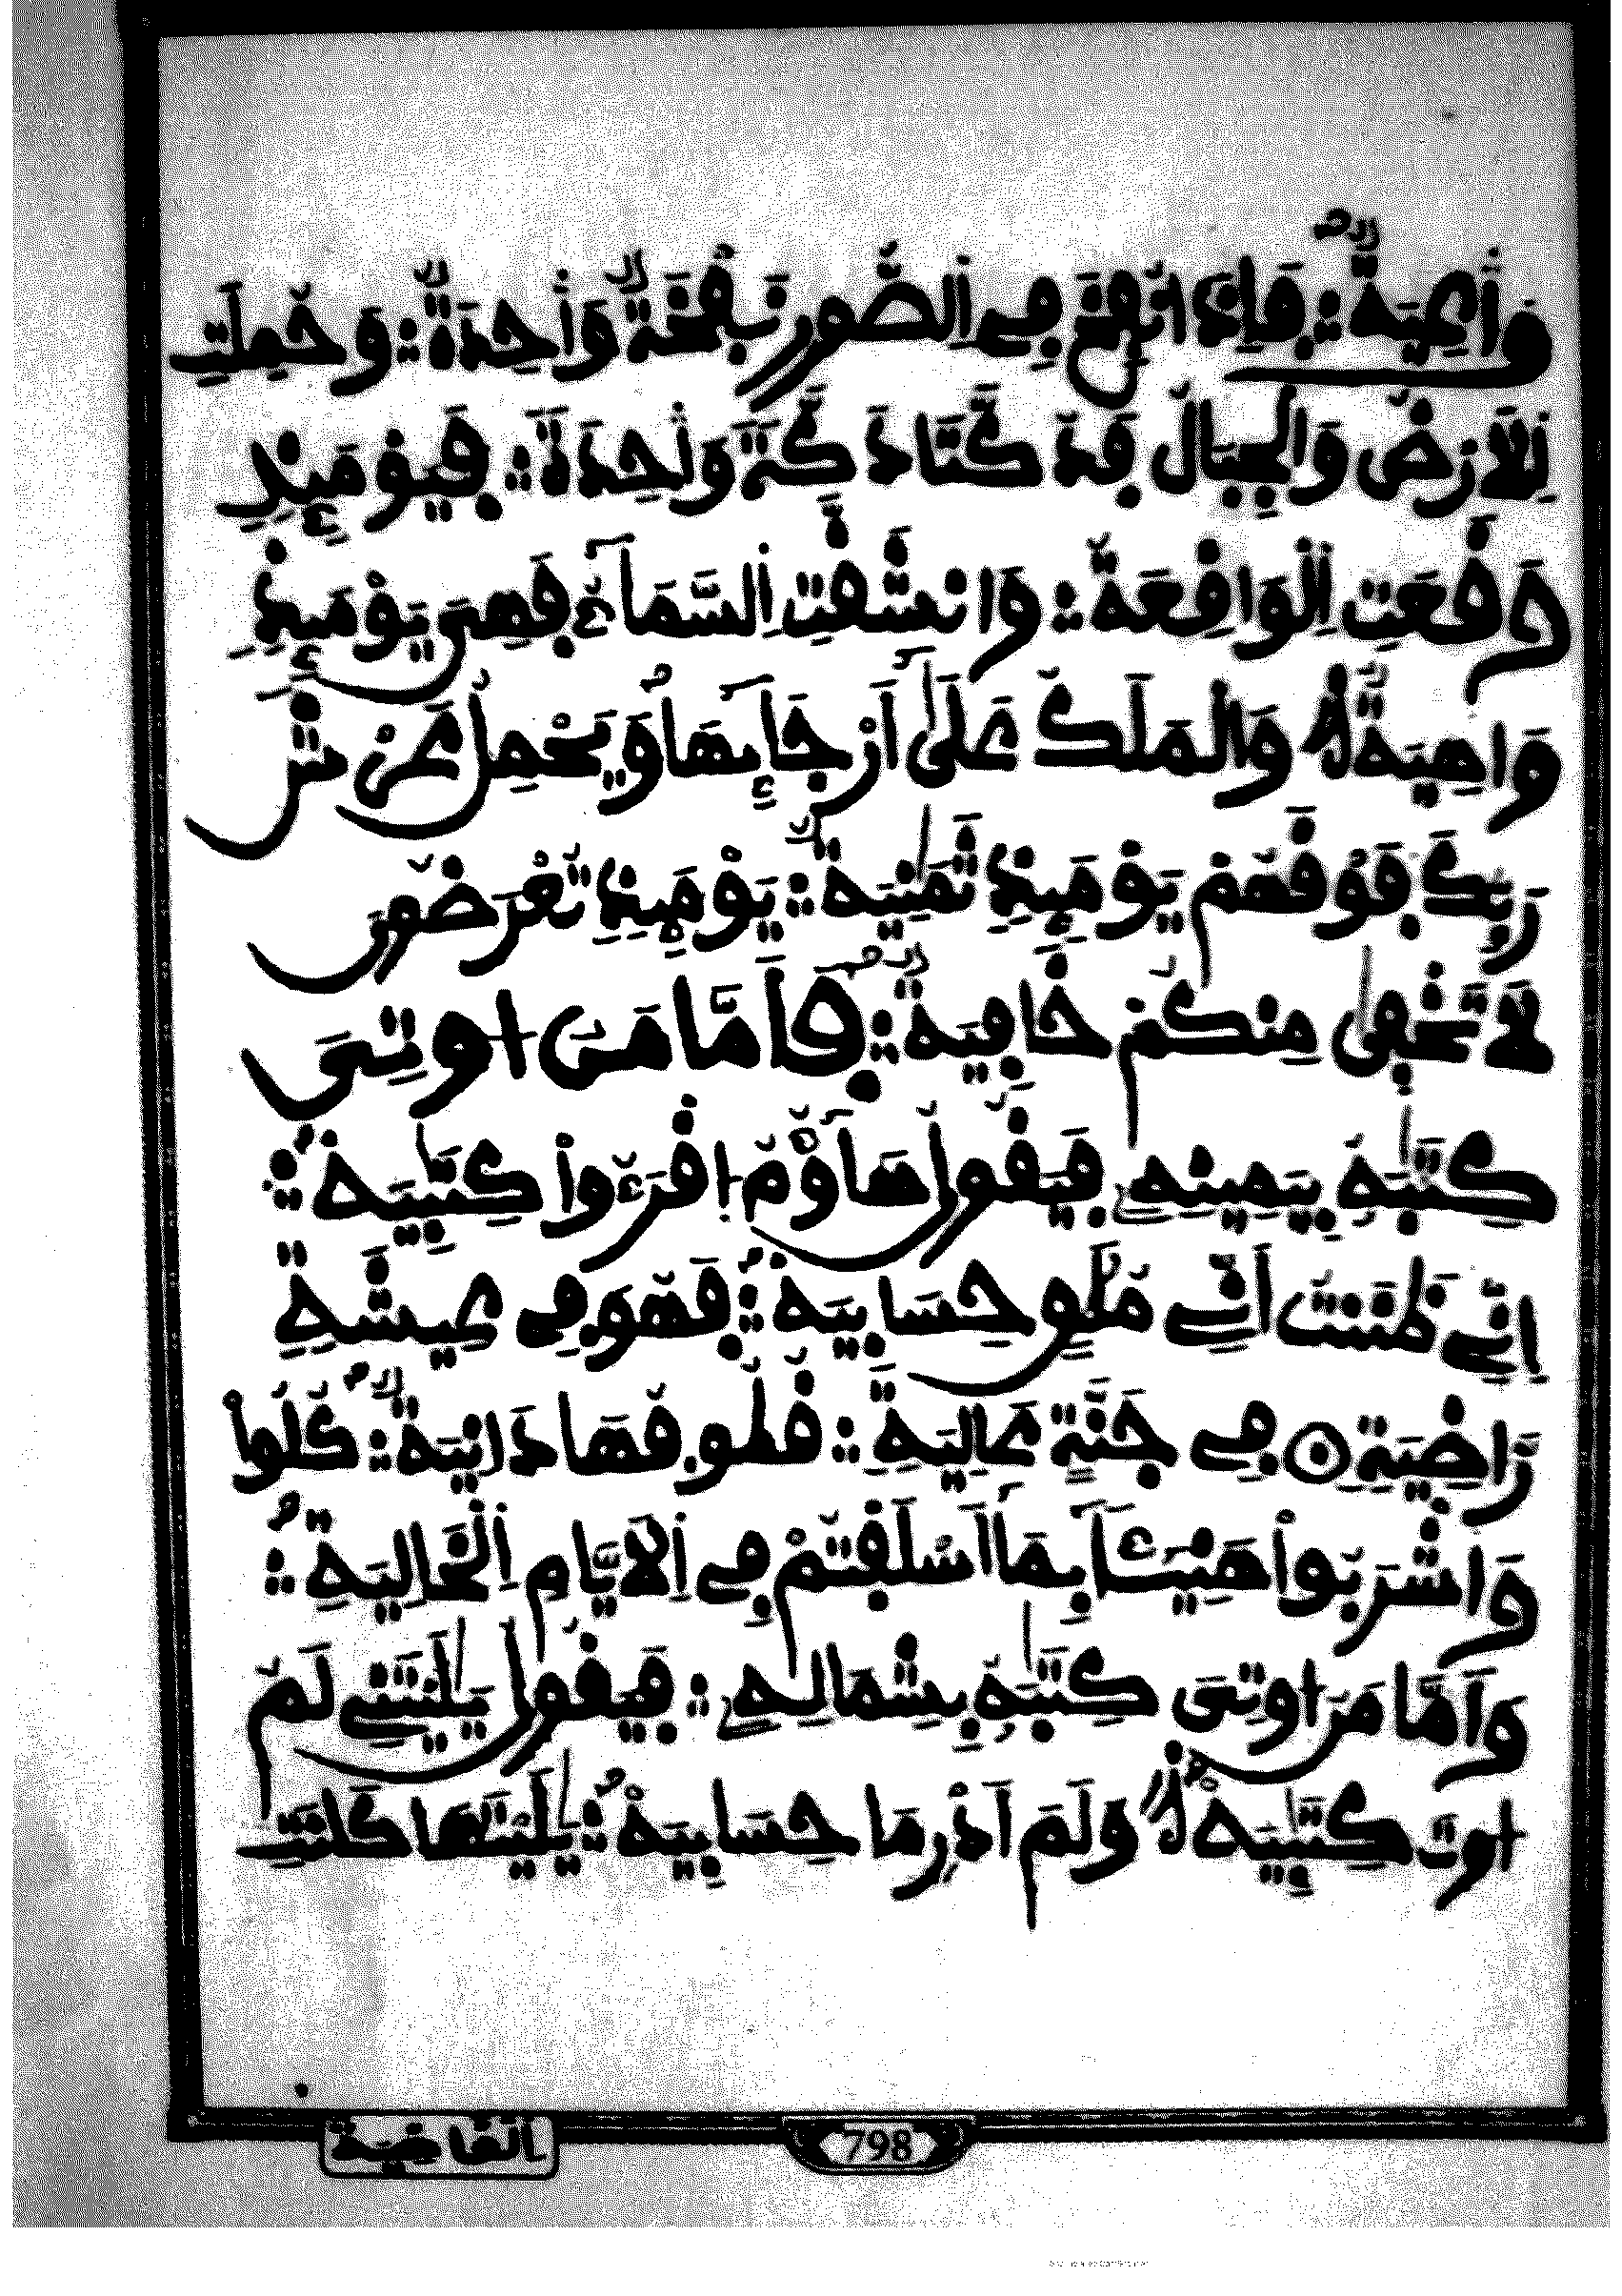 وَٰعِيَةٌ ۝ فَإِذَا نُفِخَ فِي اِلصُّورِ نَفْخَةٌ وَٰحِدَةٌ ۝ وَحُمِلَتِ
اِلَارْضُ وَالْجِبَالُ فَدُكَّتَا دَكَّةً وَٰحِدَةً ۝ فَيَوْمَئِذٍ
وَقَعَتِ اِلْوَاقِعَةُ ۝ وَانشَقَّتِ اِلسَّمَآءُ فَهِيَ يَوْمَئِذٍ
وَاهِيَةٌ ۝ وَالْمَلَكُ عَلَىٰٓ أَرْجَآئِهَا وَيَحْمِلُ عَرْشَ
رَبِّكَ فَوْقَهُمْ يَوْمَئِذٍ ثَمَٰنِيَةٌ ۝ يَوْمَئِذٍ تُعْرَضُونَ
لَا تَخْفَىٰ مِنكُمْ خَافِيَةٌ ۝ فَأَمَّا مَنُ اوتِيَ
كِتَٰبَهُۥ بِيَمِينِهِۦ فَيَقُولُ هَآؤُمُ اُ۪قْرَءُواْ كِتَٰبِيَهْ ۝
إِنِّي ظَنَنتُ أَنِّي مُلَٰقٍ حِسَابِيَهْ ۝ فَهُوَ فِي عِيشَةٍ
رَّاضِيَةٍ ۝ فِي جَنَّةٍ عَالِيَةٍ ۝ قُطُوفُهَا دَانِيَةٌ ۝ كُلُواْ
وَاشْرَبُواْ هَنِيٓـئاَۢ بِمَآ أَسْلَفْتُمْ فِي اِلَايَّامِ اِلْخَالِيَةِ ۝
وَأَمَّا مَنُ اوتِيَ كِتَٰبَهُۥ بِشِمَالِهِۦ ۝ فَيَقُولُ يَٰلَيْتَنِي لَمُ
اوتَ كِتَٰبِيَهْ ۝ وَلَمَ اَدْرِ مَا حِسَابِيَهْ ۝ يَٰلَيْتَهَا كَانَتِ
798